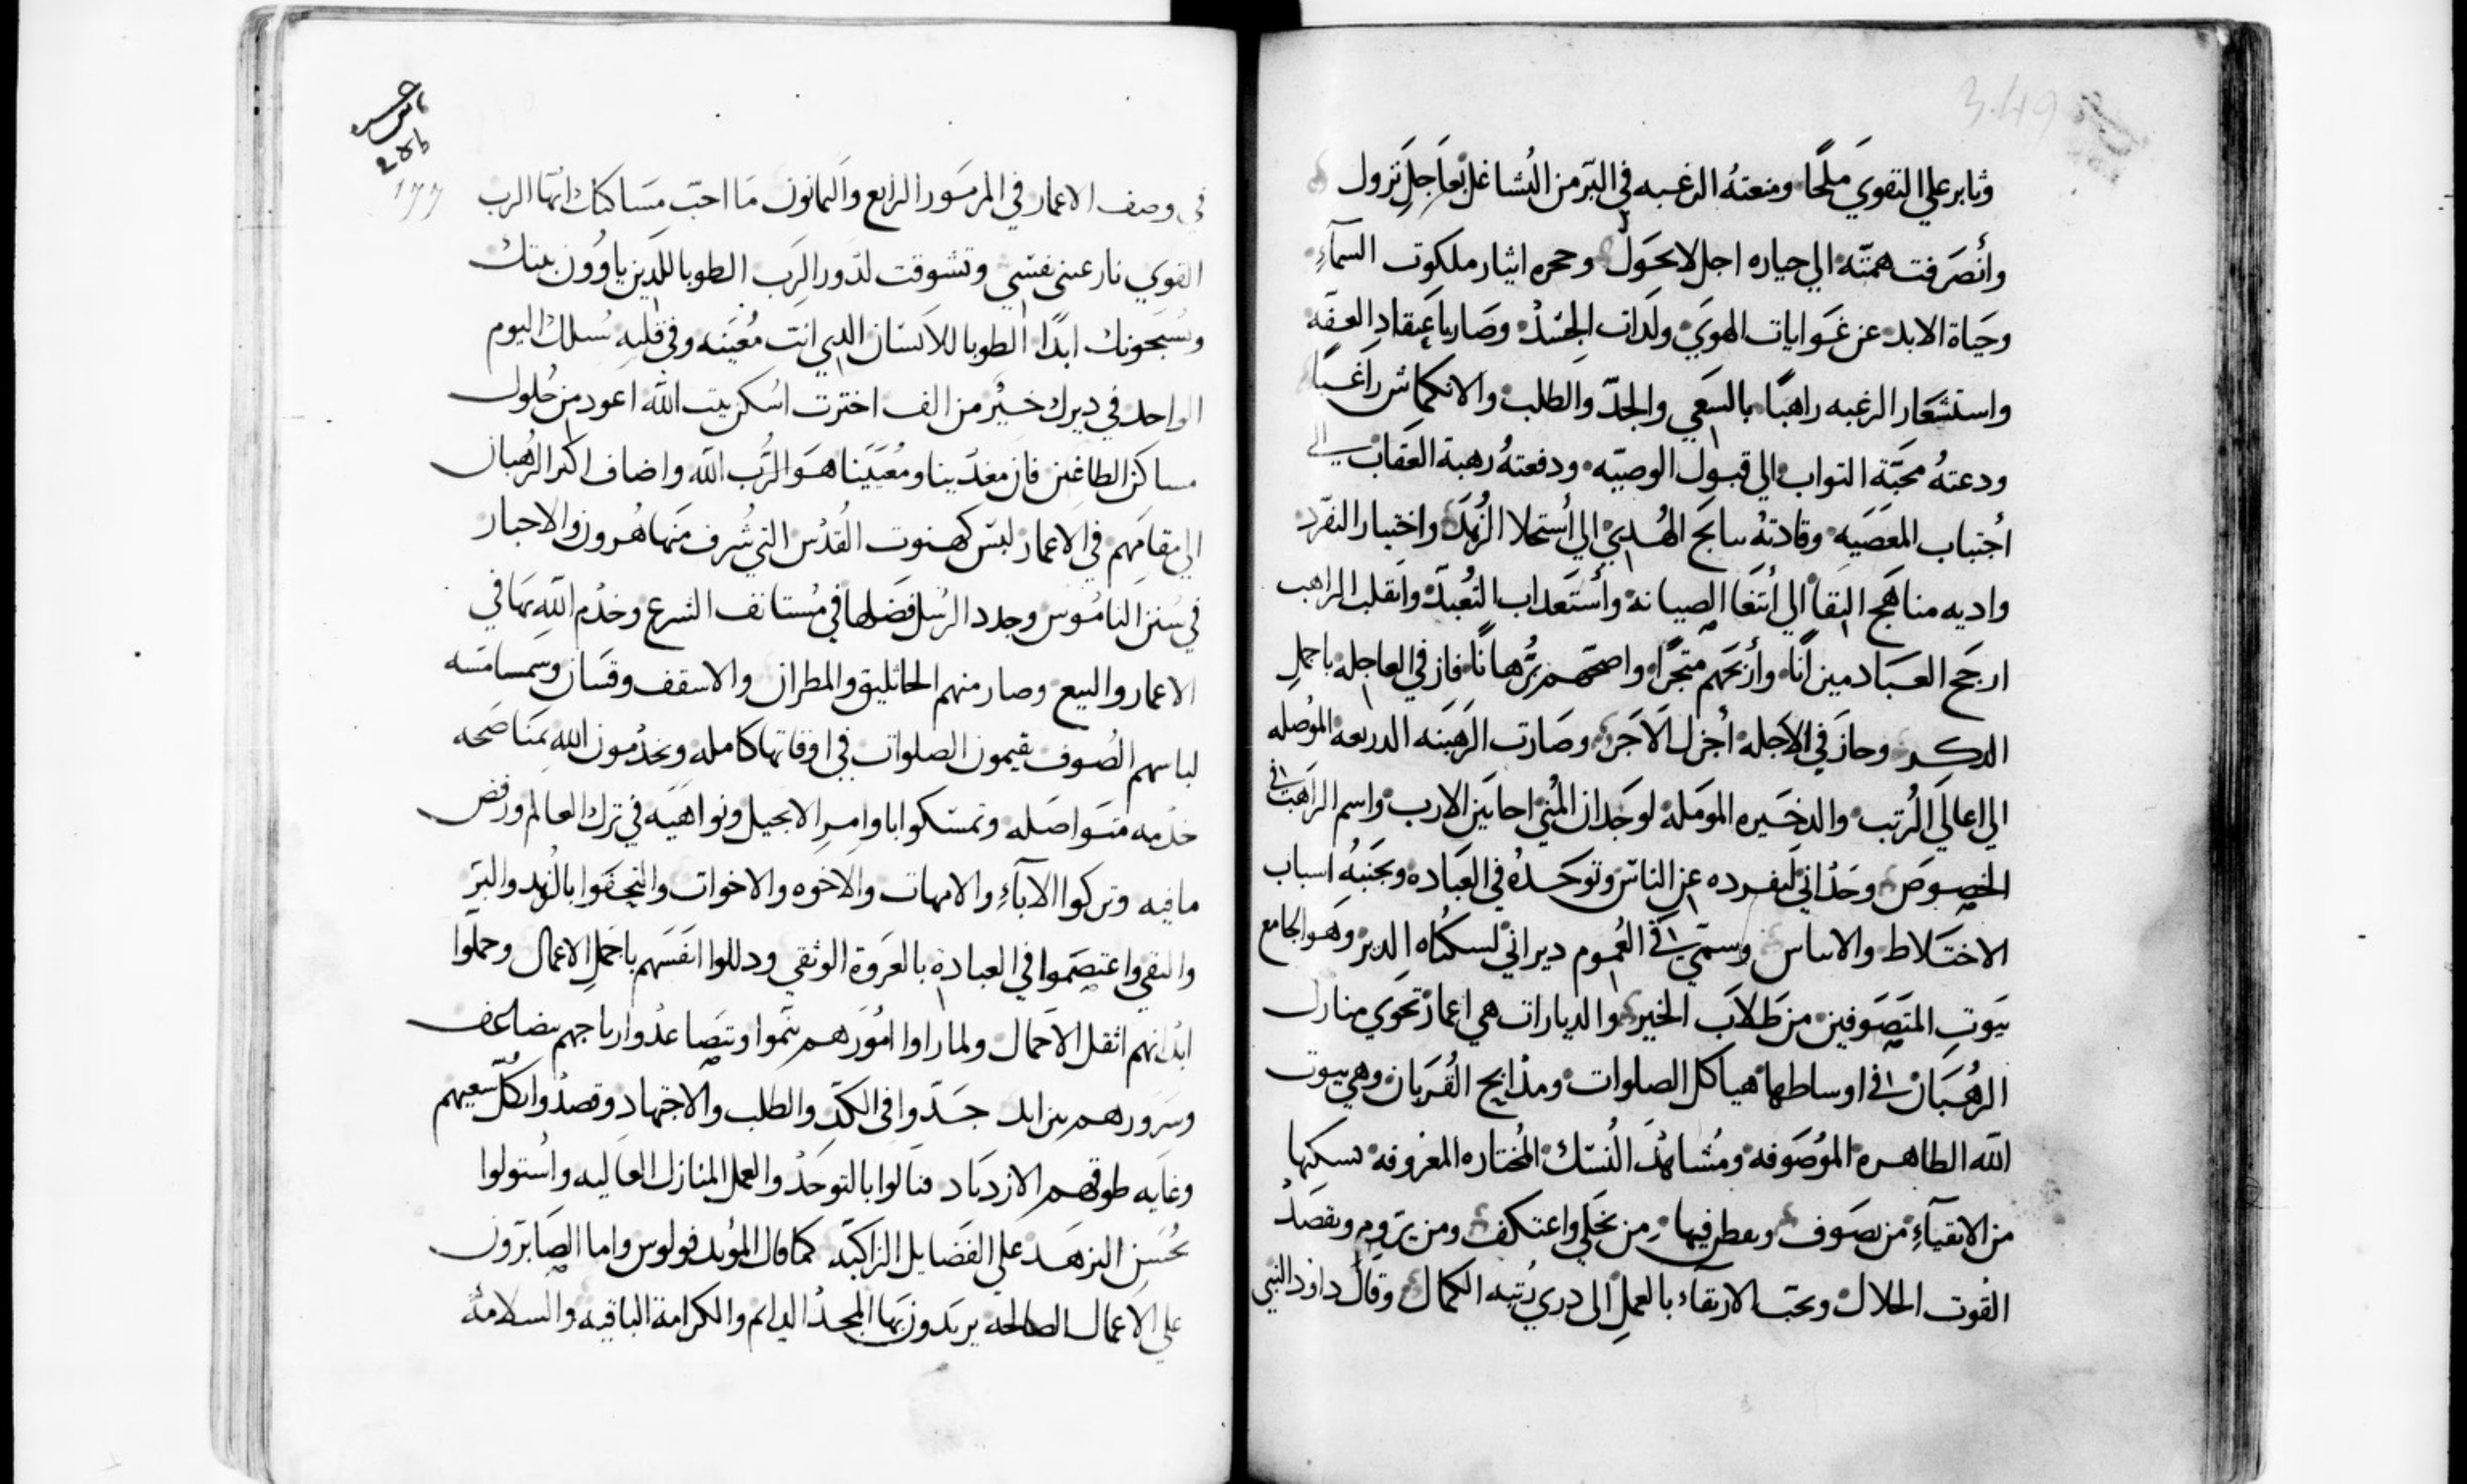 وثابر علي التقوي ملحًا ومنعتهُ الرغبه في البّر من التُشاغل بعاجل تزول
وأنصَرفت همتّه الي حياره اجل لا يحَول وحجره ايثار ملكوت السمآءِ
وحيَاة الابد عن غوايات الهوي ولدات الجَسَد وصَار باعتقادِ العفّه
واستشعَار الرغبه راهبًا بالسَعي والجدّ والطلب والانكماش راغبًا
ودعتهُ محَبّة التواب الي قبول الوصيّه ودفعتهُ رهبة العَقاب الي
أجتباب المعَصَيِه وقادتهُ سابج الهُدي الي أستحلا الزُهَد واختيار التفرّد
واديه مناهَج البقا الي أبتغا الصيانة وأستَعداب التَعُبدّ وانقلب الراهب
ارجَح العبَاد ميزانًا وأربحَهم متجرًا واصحّهم بُرهانًا فاز في العاجله باجملِ
الدكر وحاز في الاجله أجزل الاجَر وصَارت الرهَبنَه الدريعه الموُصله
الي اعالي الرُتب والدخَيره الموَملة لوجَدان المُني احايز الارب واسم الراهَب في
الخصوصَ وحَدُاني لتفرده عن الناسّ وتوحَدهُ في العَباده وتجَنبهُ اسباب
الاختَلاط والاساس وسمّي في العُموم ديراني لسكنُاه الدير وهَو الجامع
بَيوتِ المتَصَوفين من طَلابَ الخير والديارات هي اعمار تحَوي منازل
الرهُبَان في اوساطها هياكل الصلوات ومدَابح القُربَان وهي بيوت
اللّه الطاهره الموُصَوفه ومُشاهدَ النُسّك المُختاره المعَروفه تسكنها
من الاتقيآءِ من تصَوف وفيها من تخَلي واعتكف ومن يرَوم ويقصَدُ
القُوت الحلال ويحَب الارتقاء بالعملِ الي دري رُتبه الكمال وقال داوُد النبي
في وصف الاعمار في المزمَور الرابع والثمانون مَا احبّ مسَاكنك ايّها الرب
القوي نفسّي وتشوقت لدَور الرَب الطوبا للدَين ياوون بيتك
ويُسبَحونك ابدًا الطوبا للاَنسَان الدي انتَ مُعيَنه وفي قلبه سُبلك اليوم
الواحد في ديرك خَيْر من الف اخترت اسُكن بيت اللّه اعود من حُلول
مساكن الطاغين فان مغدّينا ومُعَيَينا هَو الرَّب اللّه واضاف اكثر الرُهبان
الي مقامَهم في الاعمار لبسّ كهنوت القُدْس التي شُرف منَها هُرون والاحبار
في سُنن النامُوس وجدد الرسُل فضَلها في مُستانف الشرع وخدُم اللّه بهَا في
الاعمار والبيع وصار منهم الجاثليق والمطران والاسقف وقسَان وشمسامسَه
لباسهم الصُوف يقيمون الصلوات في اوقاتها كامله ويخدُمون اللّه بمَناصَحه
خدَمه متَواصَله وتمسّكوا باوامرِ الانجيل ونواهَيه في ترك العالم ورفض
مافيه وتركوا الابآءِ والامهات والاخوه والاخوات والتحَفوا بالزُهد والبَر
والتقي واعتصَموا في العبادة بالعَروة الوثقي ودللوا انفَسَهم باجَملِ الاعمال وحمَلّوا
ابدُانهم اثقل الاَحمَال ولما راوا امُورَهم تنمَوا وتتصَاعدُ وارباحهم تتضاعف
وسَرَورهم يتزايد جَدّوا في الكدّ والطلب والاجتهاد وقصدُوا بكُلّ سعيهم
وغايه طوقهم الازديَاد فنَالوا بالتوحَدُ والعمل المنازل العَاليه واسُتولوا
بحُسَن التزهَد علي الفَضايل الزاكيّه كما قال المؤُيد فولوس واما الصَابرَون
علي الاعمال الصالحه يريَدون بهَا المجَدُ الدايم والكرامة الباقيه والسلامه
177
349